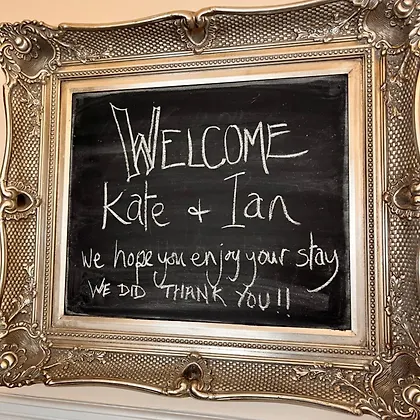 WELCOME
Kate & Ian
we hope you enjoy your stay
WE DID THANK YOU!!